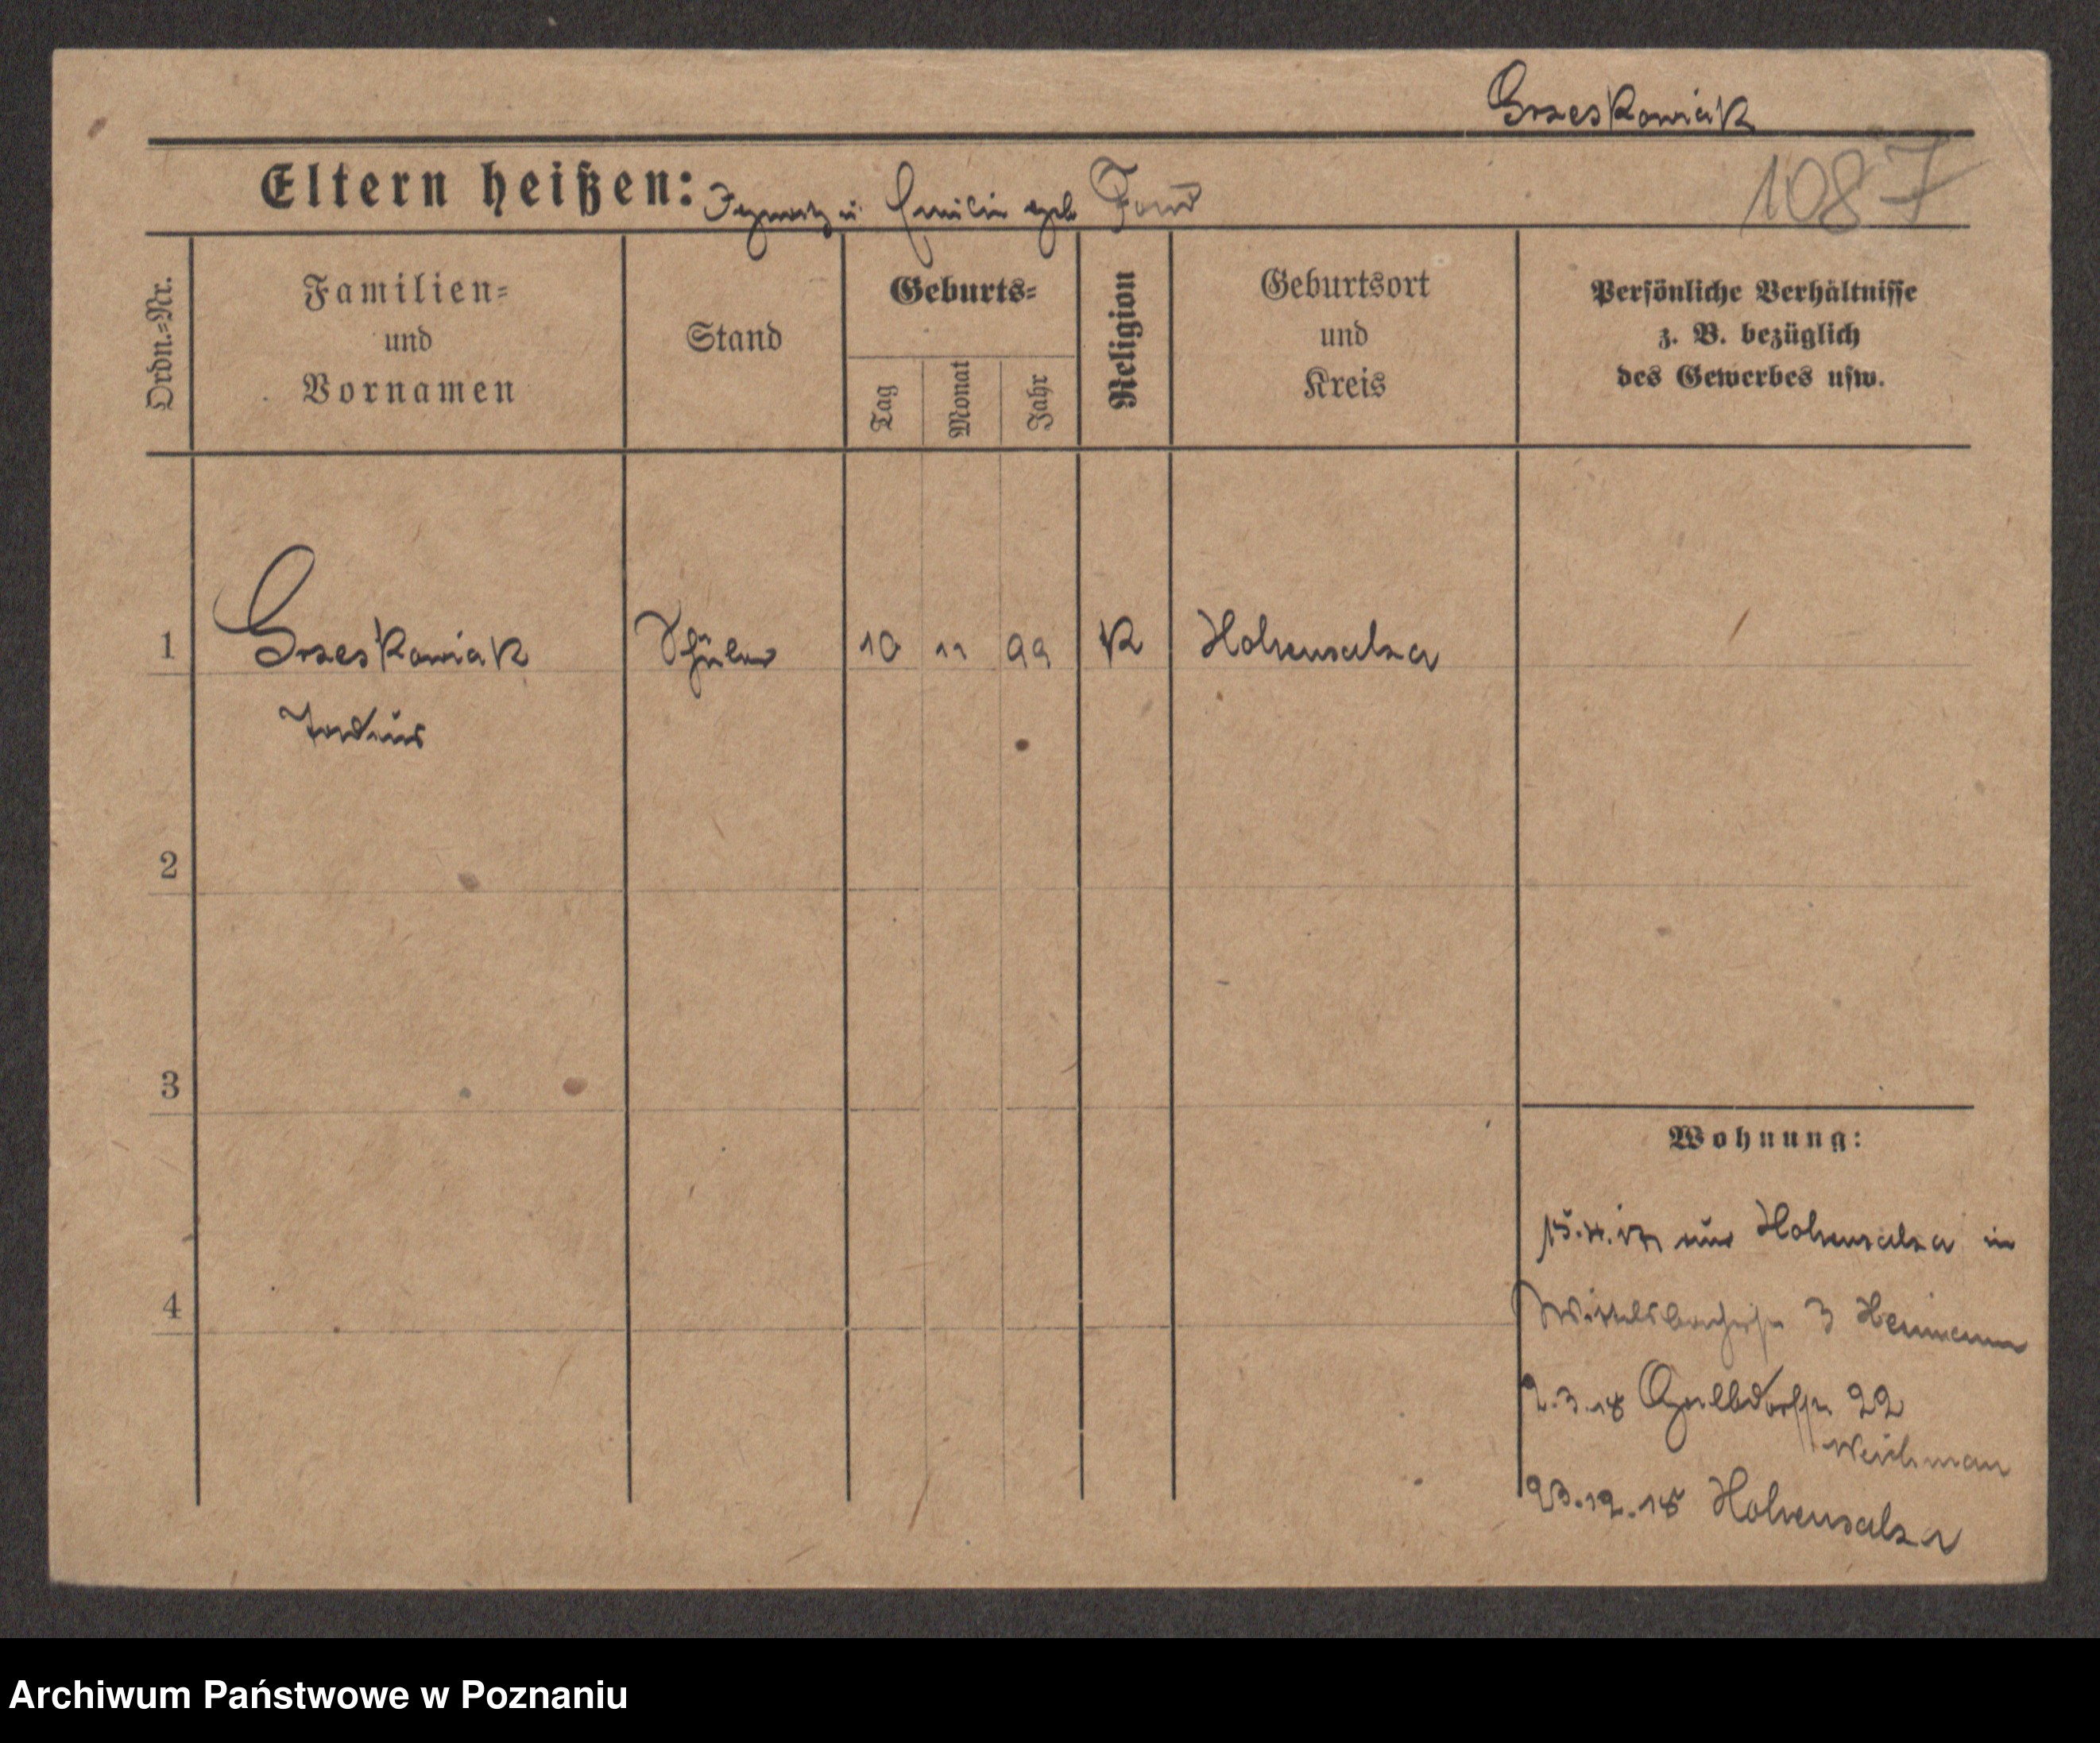 Grzeskowiak
1087
Eltern heißen: Ignatz u. Emilie geb.
Ordn.=Nr.
Familien=
und
Vornamen
Stand
Geburts=
Tag
Monat
Jahr
Religion
Geburtsort
und
Kreis
Persönliche Verhältnisse
z. B. bezüglich
des Gewerbes usw.
1 Grzeskowiak Schüler 10 11 99 K Hohensalza
2
3
4
Wohnung:
aus Hohensalza in
3 Heimann
2.3.18 22
23.12.18 Hohensalza
Archiwum Państwowe w Poznaniu